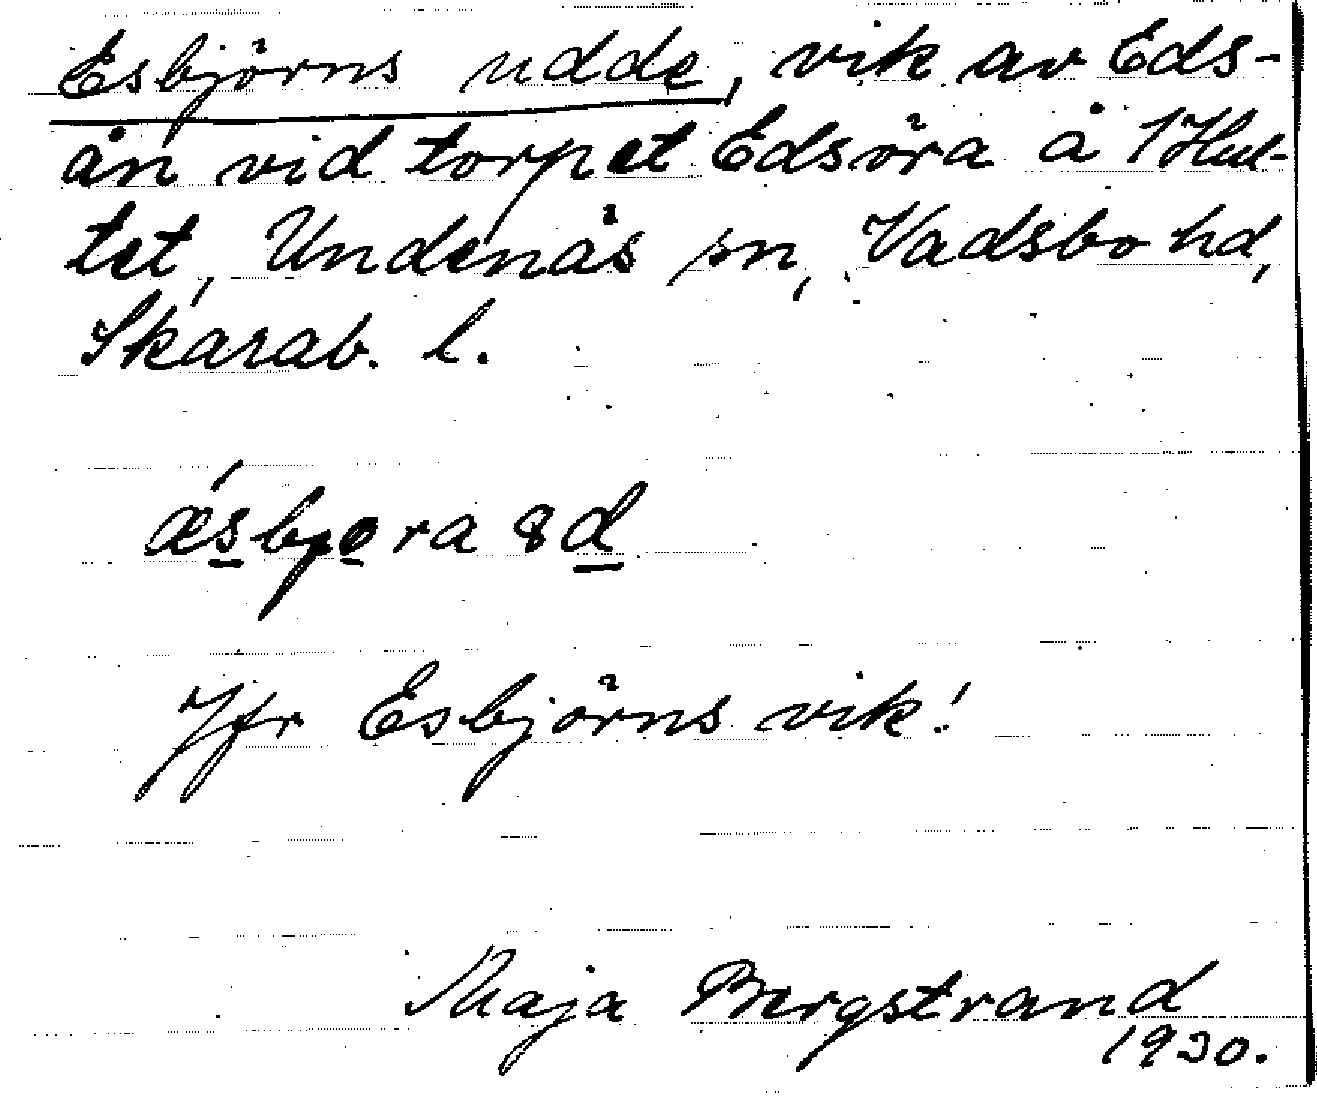 Esbjörns udde, vik av Eds-
ån vid torpet Edsöra å Hul-
tet, Undenäs sn, Vadsbo hd,
Skarab. l.
Jfr Esbjörns vik!
Maja Bergstrand
1930.